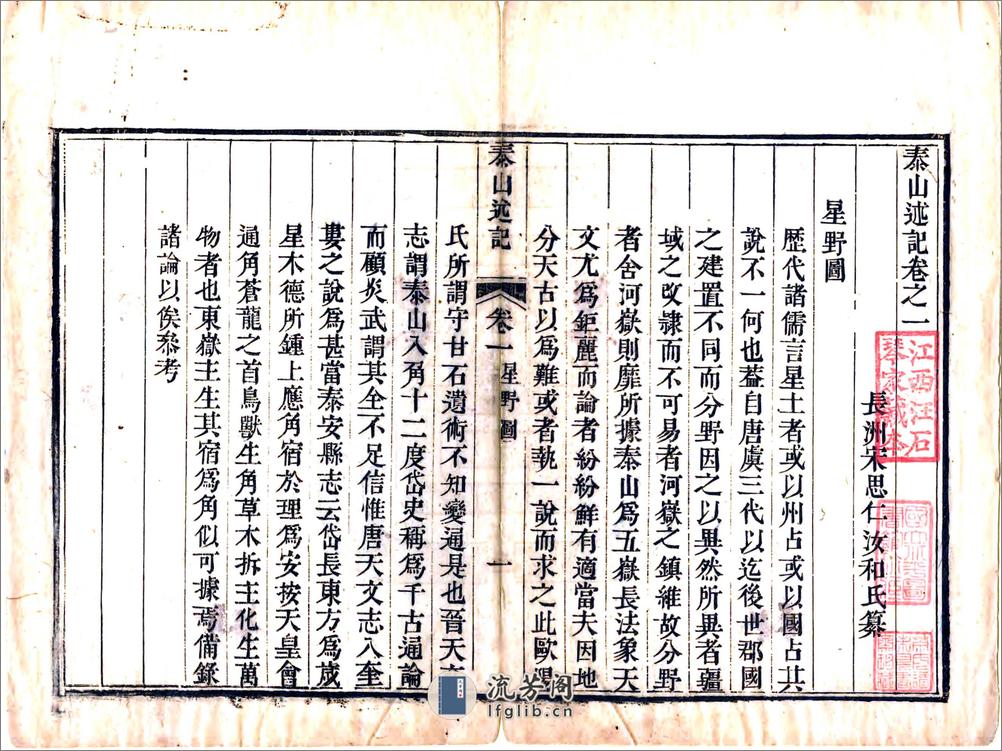 泰山述記卷之一
長洲宋思仁汝和氏纂
星野圖
歷代諸儒言星土者或以州占或以國占其
說不一何也葢自唐虞三代以迄後世郡國
之建置不同而分野因之以異然所異者疆
域之改隷而不可易者河嶽之鎮維故分野
者舍河嶽則靡所據泰山為五嶽長法象天
文尤為鉅麗而論者紛紛鮮有適當夫因地
分天古以為難或者執一說而求之此歐陽
泰山述記 卷一 星野圖 一
氏所謂守甘石遺術不知變通是也晉天文
志謂泰山入角十二度岱史稱為千古通論
而顧炎武謂其全不足信惟唐天文志入奎
婁之說為甚當泰安縣志云岱長東方為歲
星木德所鍾上應角宿於理為安按天皇會
通角蒼龍之首鳥獸生角草木拆主化生萬
物者也東嶽主生其宿為角似可據焉備錄
諸論以俟叅考
江西汪石
琴家藏本
流芳阁
lfglib.cn